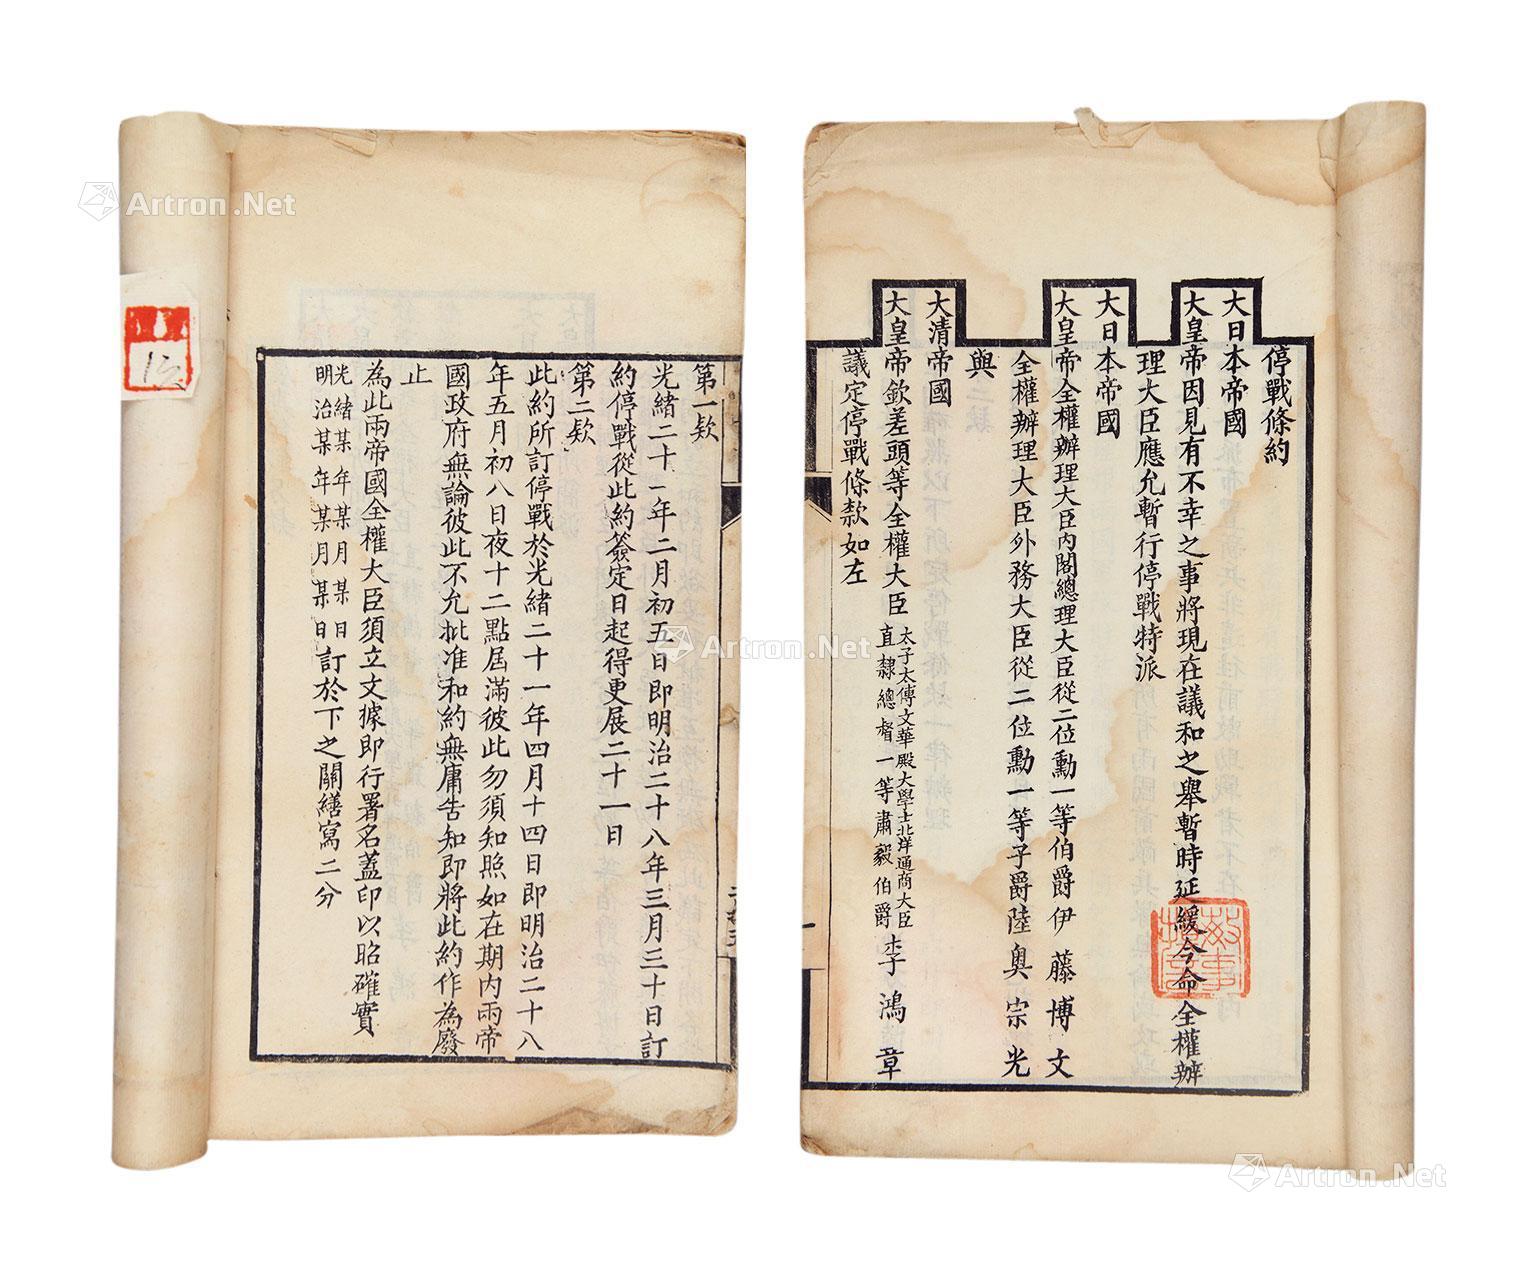 停戰條約
大日本帝國
大皇帝因見有不幸之事將現在議和之舉暫時延緩今命全權辦
理大臣應允暫行停戰特派
大日本帝國
大皇帝全權辦理大臣內閣總理大臣從二位勳一等伯爵伊藤博文
全權辦理大臣外務大臣從二位勳一等子爵陸奧宗光
與
大清帝國
大皇帝欽差頭等全權大臣太子太傅文華殿大學士北洋通商大臣直隸總督一等肅毅伯爵李鴻章
議定停戰條款如左
第一欵
光緒二十一年二月初五日即明治二十八年三月三十日訂
約停戰從此約簽定日起得更展二十一日
第二欵
此約所訂停戰於光緒二十一年四月十四日即明治二十八
年五月初八日夜十二點屆滿彼此勿須知照如在期內兩帝
國政府無論彼此不允批准和約無庸告知即將此約作為廢
止
為此兩帝國全權大臣須立文據即行署名蓋印以昭確實
光緒某年某月某日
明治某年某月某日訂於下之關繕寫二分
Artron.Net
Artron.Net
Artron.Net